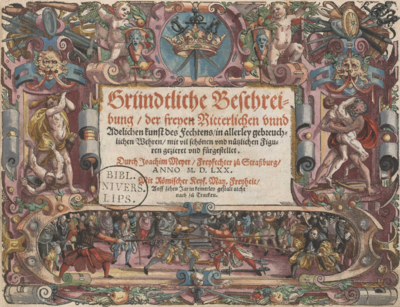 Gründtliche Beschrei-
bung / der freyen Ritterlichen vnnd
Adelichen kunst des Fechtens / in allerley gebreuch-
lichen Wehren / mit vil schönen vnd nützlichen Figu-
ren gezieret vnd fürgestellet.
Durch Joachim Meyer / Freyfechter zů Straßburg /
ANNO M. D. LXX.
Mit Römischer Keys. May. Freyheit /
Auff zehen Jar in keinerley gestalt nicht
nach zů Trucken.
BIBL.
VNIVERS.
LIPS.